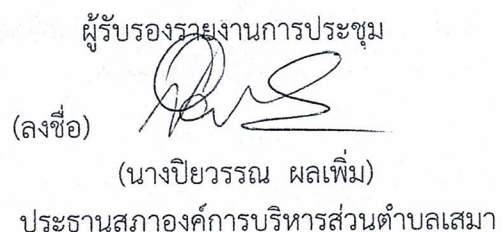 ผู้รับรองรายงานการประชุม
(ลงชื่อ)
(นางปิยวรรณ ผลเพิ่ม)
ประธานสภาองค์การบริหารส่วนตำบลเสมา